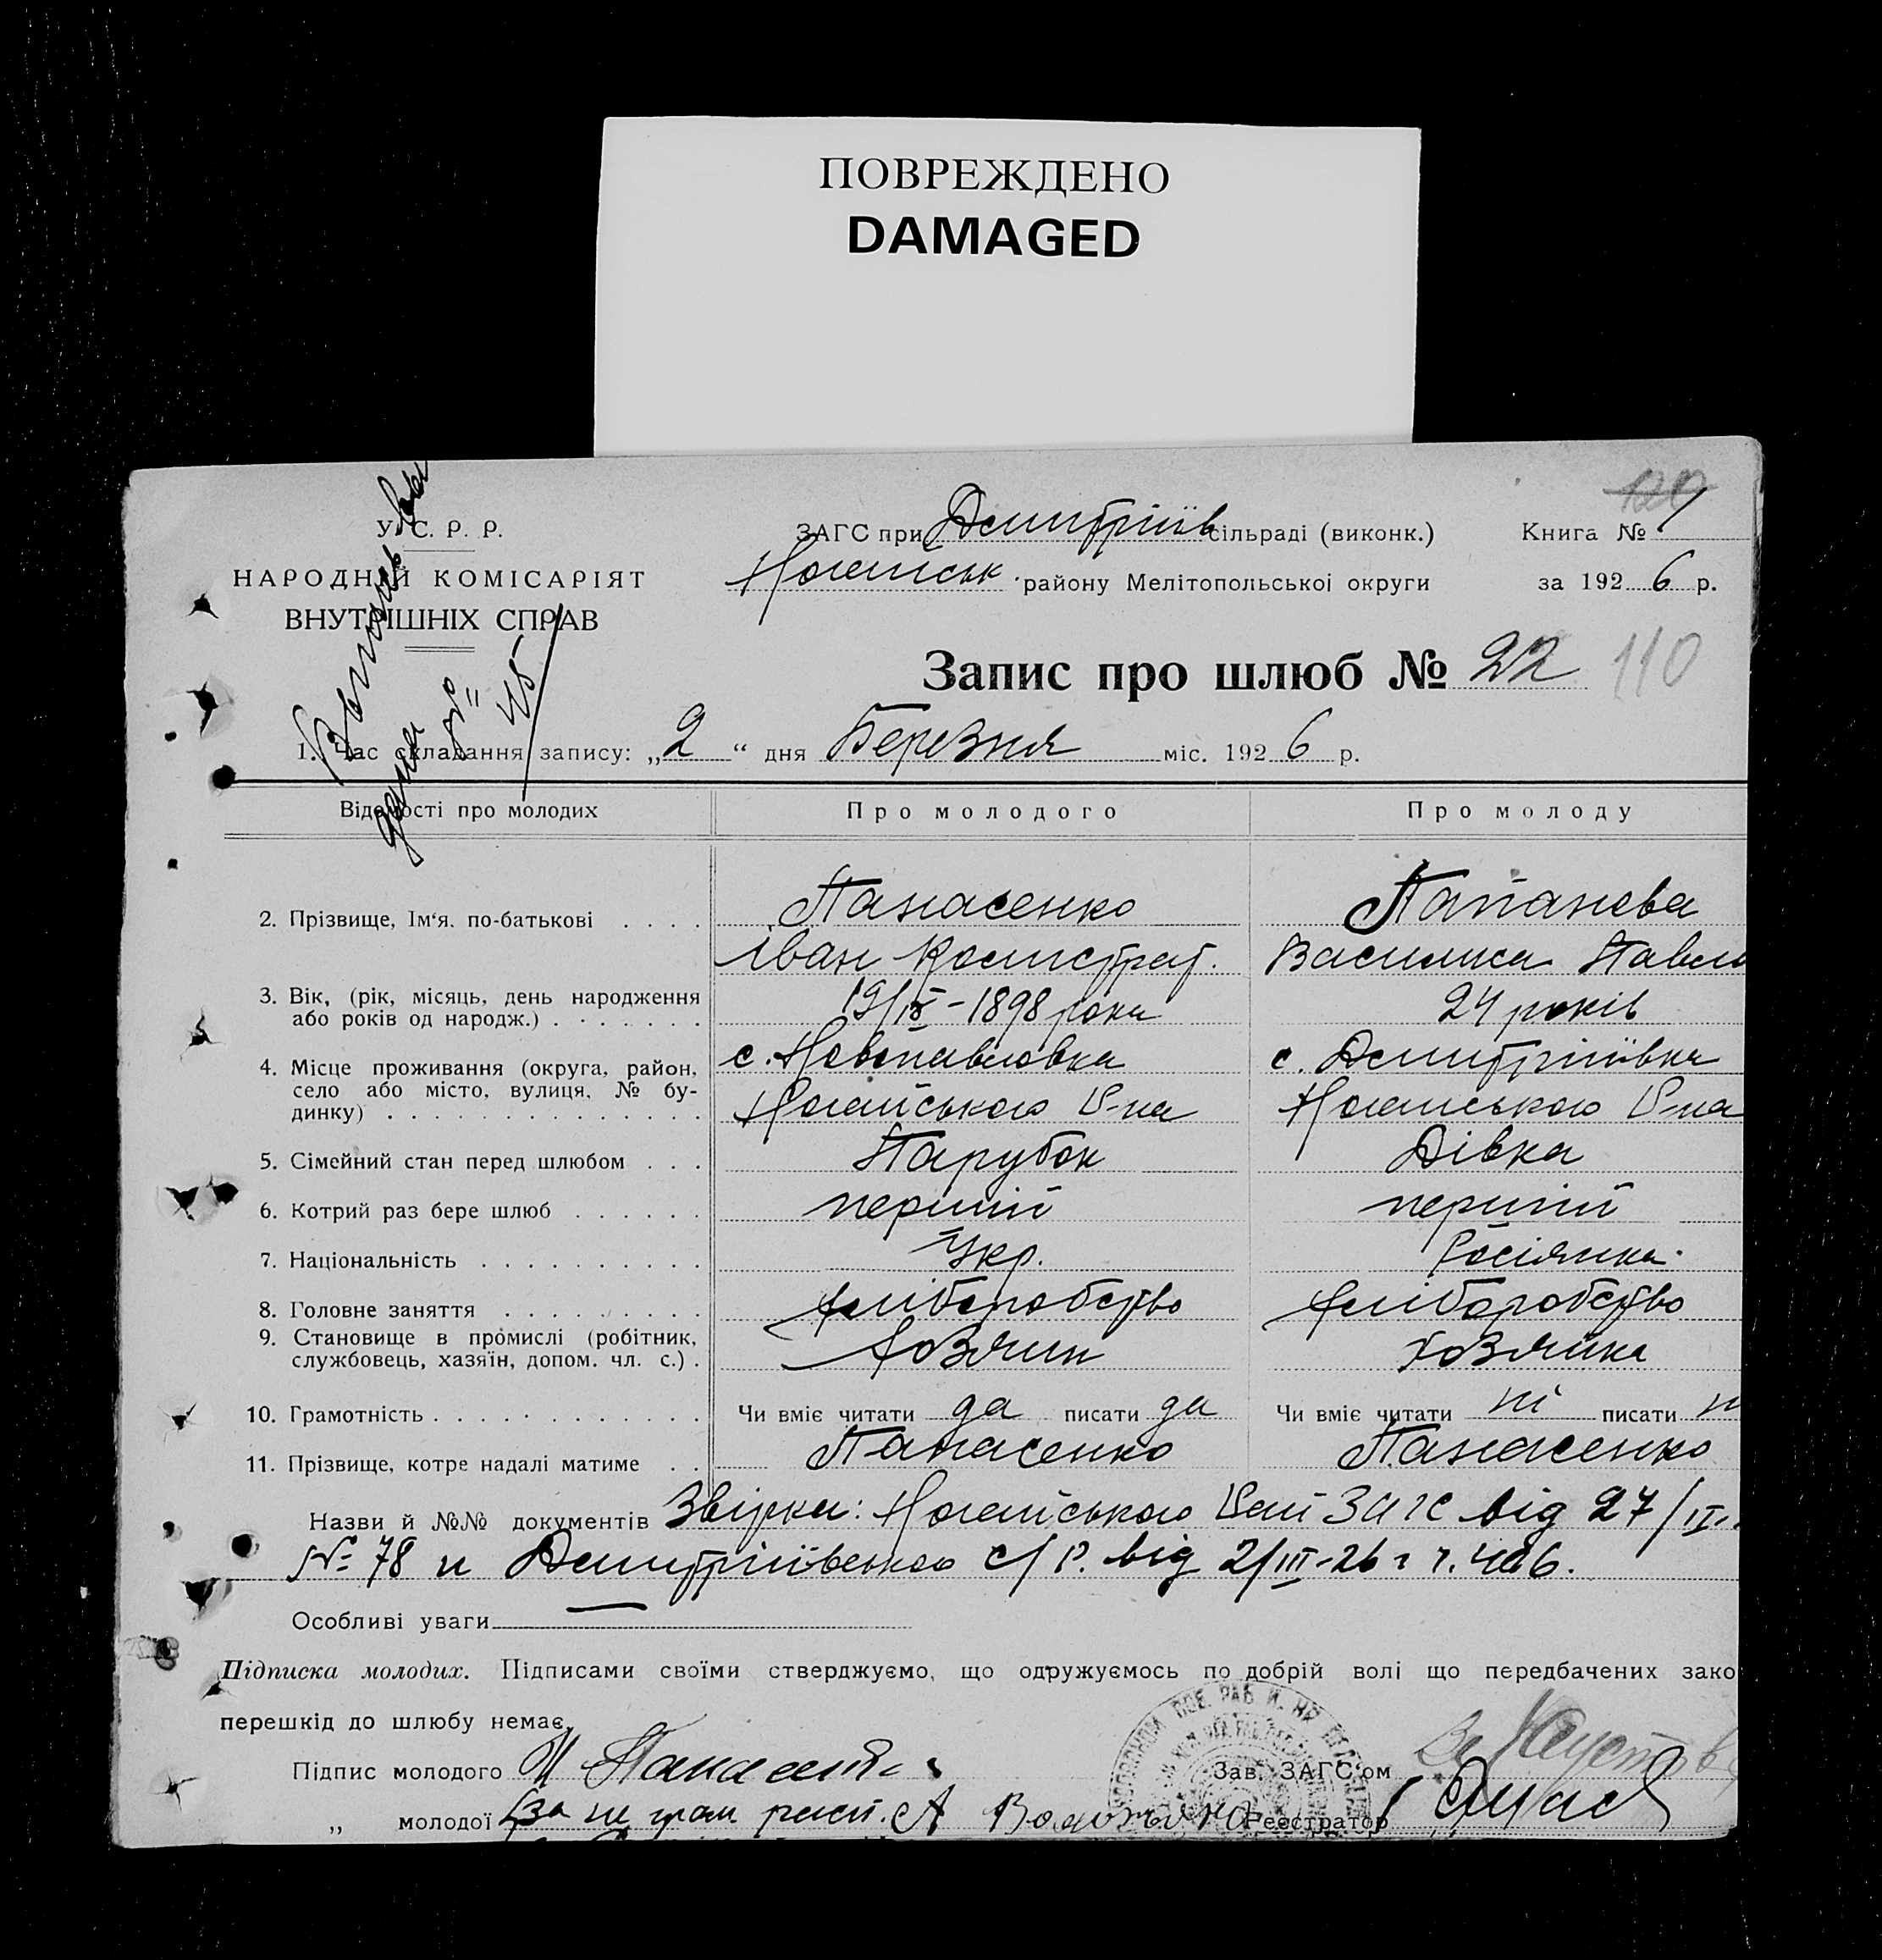 ПОВРЕЖДЕНО
DAMAGED
У. С. Р. Р.
НАРОДНІЙ КОМІСАРІЯТ
ВНУТРІШНІХ СПРАВ
ЗАГС при Дмитріїв сільраді (виконк.)
Ногайськ. району Мелітопольської округи
Книга № 1
за 1926 р.
Запис про шлюб № 22 110
1. Час складання запису: „2“ дня Березня міс. 1926 р.
Відомості про молодих Про молодого Про молоду
2. Прізвище, Ім'я. по-батькові . . . . Панасенко Папанева
Іван Калистрат. Василиса Павло
3. Вік, (рік, місяць, день народження 19/IX-1898 рока 24 років
або років од народж.) . . . . . . .
4. Місце проживання (округа, район, с. Новопавловка с. Дмитріївка
село або місто, вулиця, № бу- Ногайського Р-на Ногайського Р-на
динку) . . . . . . . . . . . . . .
5. Сімейний стан перед шлюбом . . . Парубок Дівка
6. Котрий раз бере шлюб . . . . . . перший перший
7. Національність . . . . . . . . . . Укр. Росіянка.
8. Головне заняття . . . . . . . . . хліборобство хліборобство
9. Становище в промислі (робітник,
службовець, хазяїн, допом. чл. с.) . Хозяин хозяйка
10. Грамотність . . . . . . . . . . . . Чи вміє читати да писати да Чи вміє читати ні писати н
11. Прізвище, котре надалі матиме . . Панасенко Панасенко
Назви й №№ документів Звірка: Ногайського Рай ЗАГС від 27/II
№ 78 и Дмитріївського с/Р. від 2/III-26 г ч. 406.
Особливі уваги —
Підписка молодих. Підписами своїми стверджуємо, що одружуємось по добрій волі що передбачених зако
перешкід до шлюбу немає.
Підпис молодого И Панасенко Зав. ЗАГС'ом
„ молодої за не грам расп. А Реєстратор